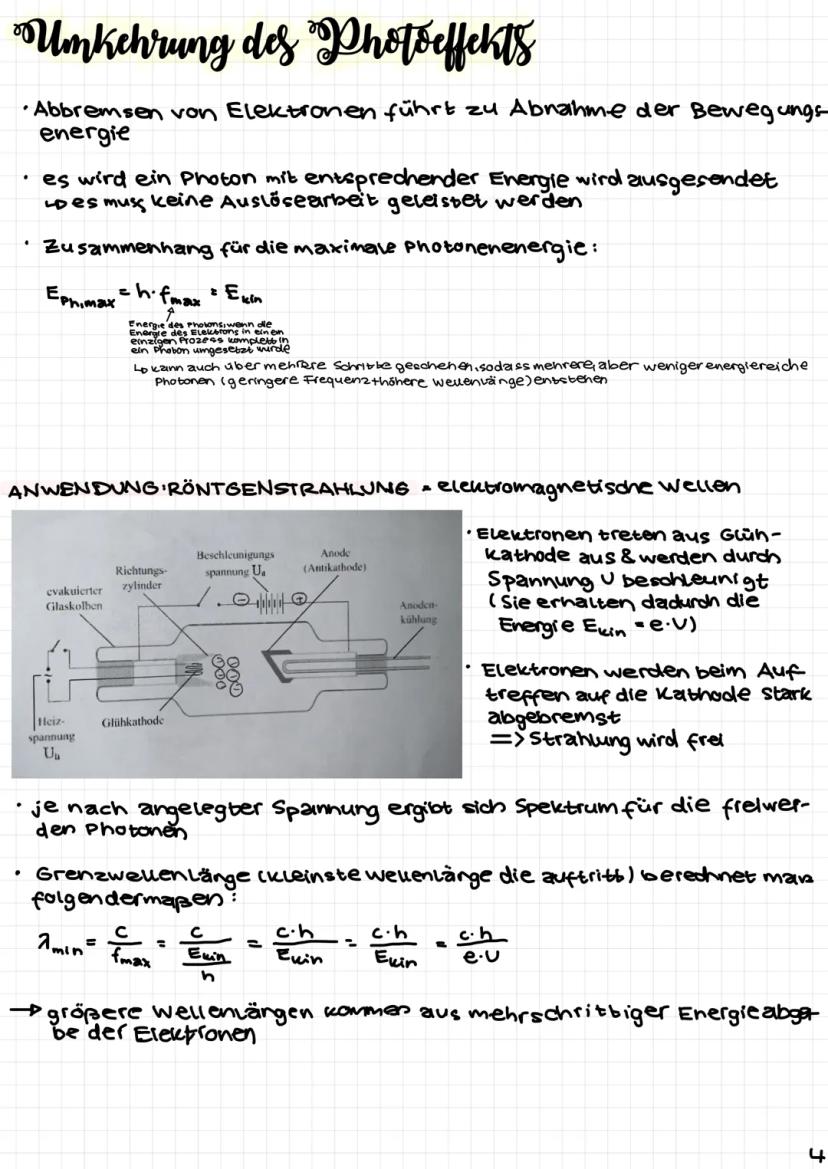 Umkehrung des Photoeffekts
· Abbremsen von Elektronen führt zu Abnahme der Bewegungs-
energie
· es wird ein Photon mit entsprechender Energie wird ausgesendet
↳ es muss keine Auslösearbeit geleistet werden
· Zusammenhang für die maximale Photonenenergie:
E_Ph,max = h·f_max = E_kin
Energie des Photons, wenn die
Energie des Elektrons in einem
einzigen Prozess komplett in
ein Photon umgesetzt wurde
↳ kann auch über mehrere Schritte geschehen, sodass mehrere, aber weniger energiereiche
Photonen (geringere Frequenz + höhere Wellenlänge) entstehen
ANWENDUNG: RÖNTGENSTRAHLUNG = elektromagnetische Wellen
Beschleunigungs
spannung Ua
Anode
(Antikathode)
Richtungs-
zylinder
evakuierter
Glaskolben
Anoden-
kühlung
Heiz-
spannung
Uh
Glühkathode
· Elektronen treten aus Glüh-
kathode aus & werden durch
Spannung U beschleunigt
(Sie erhalten dadurch die
Energie E_kin = e·U)
· Elektronen werden beim Auf
treffen auf die Kathode stark
abgebremst
=> Strahlung wird frei
· je nach angelegter Spannung ergibt sich Spektrum für die freiwer-
den Photonen
· Grenzwellenlänge (kleinste Wellenlänge die auftritt) berechnet man
folgendermaßen:
λ_min = c/f_max = c/(E_kin/h) = c·h/E_kin = c·h/E_kin = c·h/e·U
→ größere Wellenlängen kommen aus mehrschrittiger Energieabga-
be der Elektronen
4